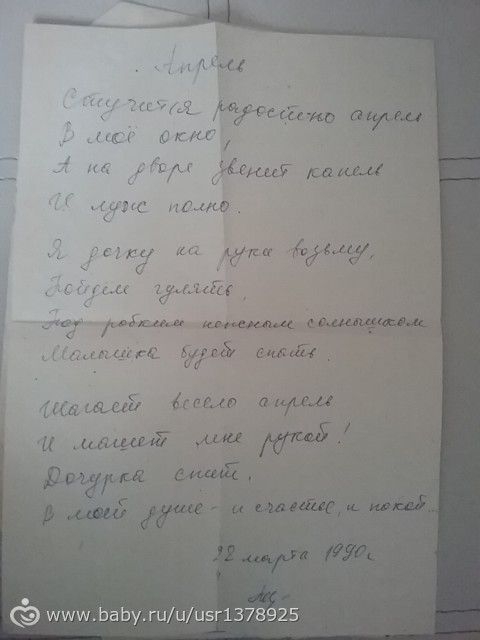 Апрель
Стучится радостно апрель
В моё окно,
А на дворе звенит капель
И луж полно.
Я дочку на руки возьму,
Пойдем гулять,
Под робким неясным солнышком
Малышка будет спать.
Шагает весело апрель
И машет мне рукой!
Дочурка спит,
В моей душе - и счастье, и покой...
22 марта 1990г
www.baby.ru/u/usr1378925